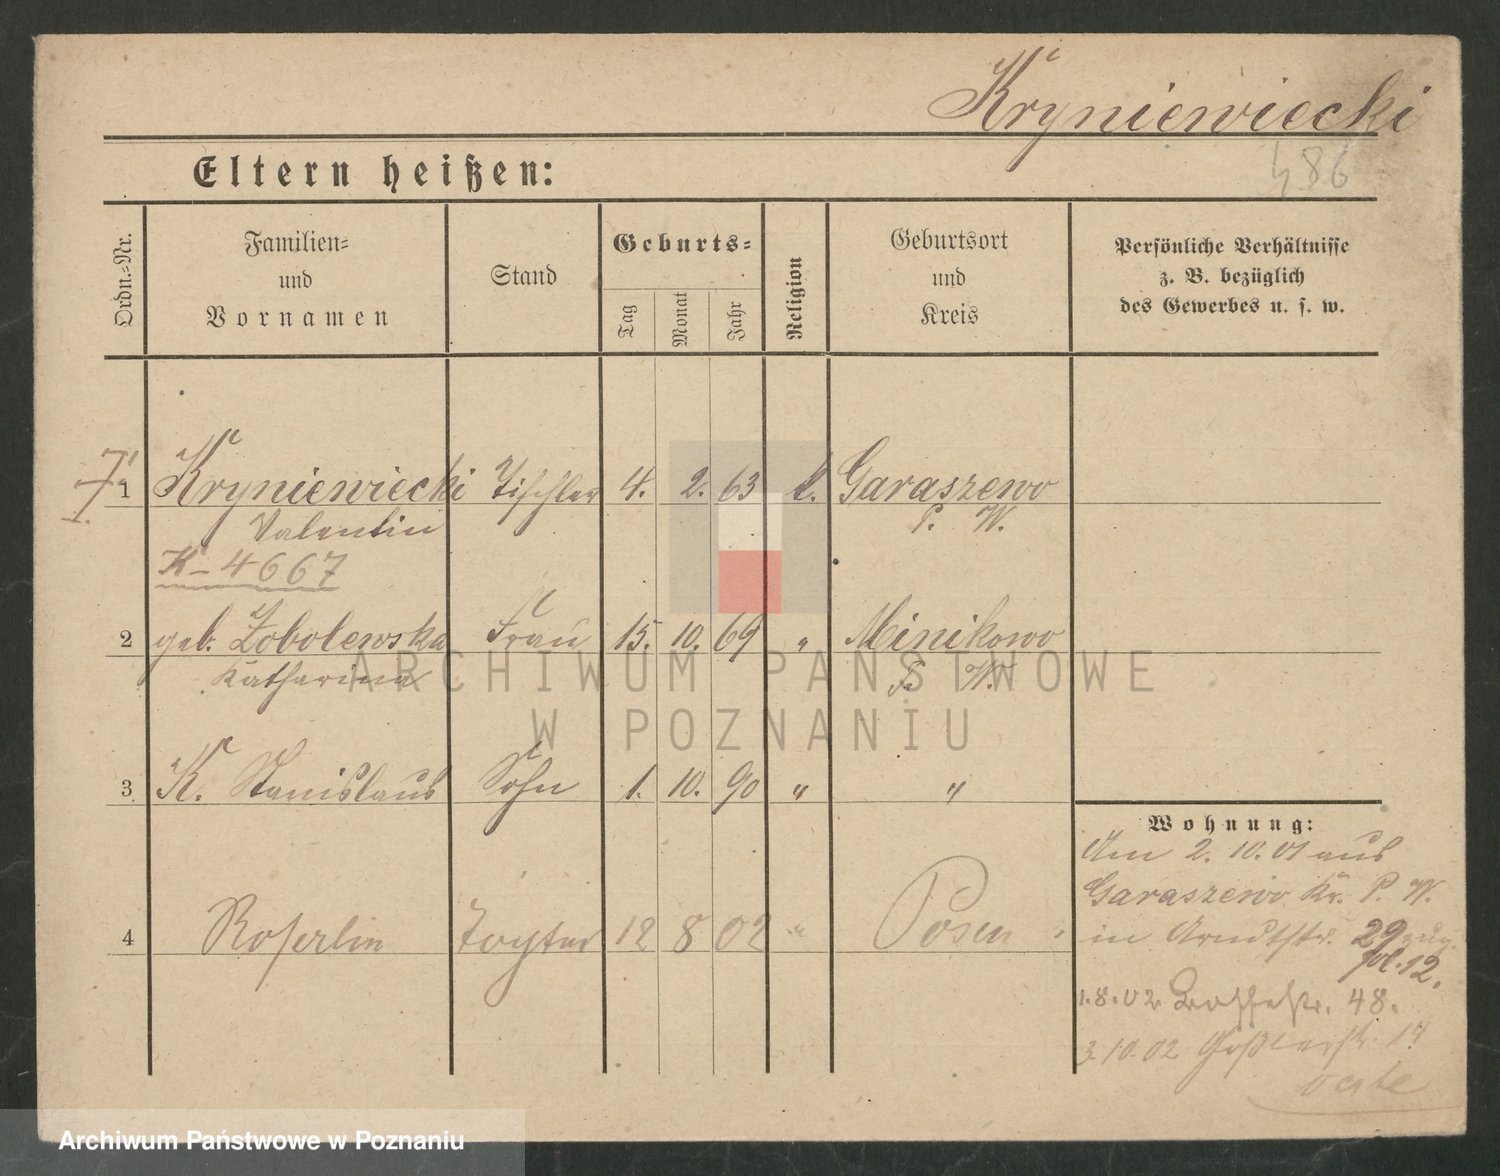 Kryniewiecki
486
Eltern heißen:
Ordn.-Nr.
Familien-
und
Vornamen
Stand
Geburts-
Tag
Monat
Jahr
Religion
Geburtsort
und
Kreis
Persönliche Verhältnisse
z. B. bezüglich
des Gewerbes u. s. w.
1 Kryniewiecki Tischler 4. 2. 63 k. Garaszewo
Valentin P. W.
K-4667
2 geb. Zobolewska Frau 15. 10. 69 " Minikowo
Katharina P. W.
3 K. Stanislaus Sohn 1. 10. 90 " "
4 Tochter 12 8 02 " Posen
Wohnung:
Am 2. 10. 01 aus
Garaszewo Kr. P. W.
in Arndtstr. 29 zug.
12.
1.8.02 48.
3.10.02 Goßlerstr. 14
verte
ARCHIWUM PAŃSTWOWE
W POZNANIU
Archiwum Państwowe w Poznaniu